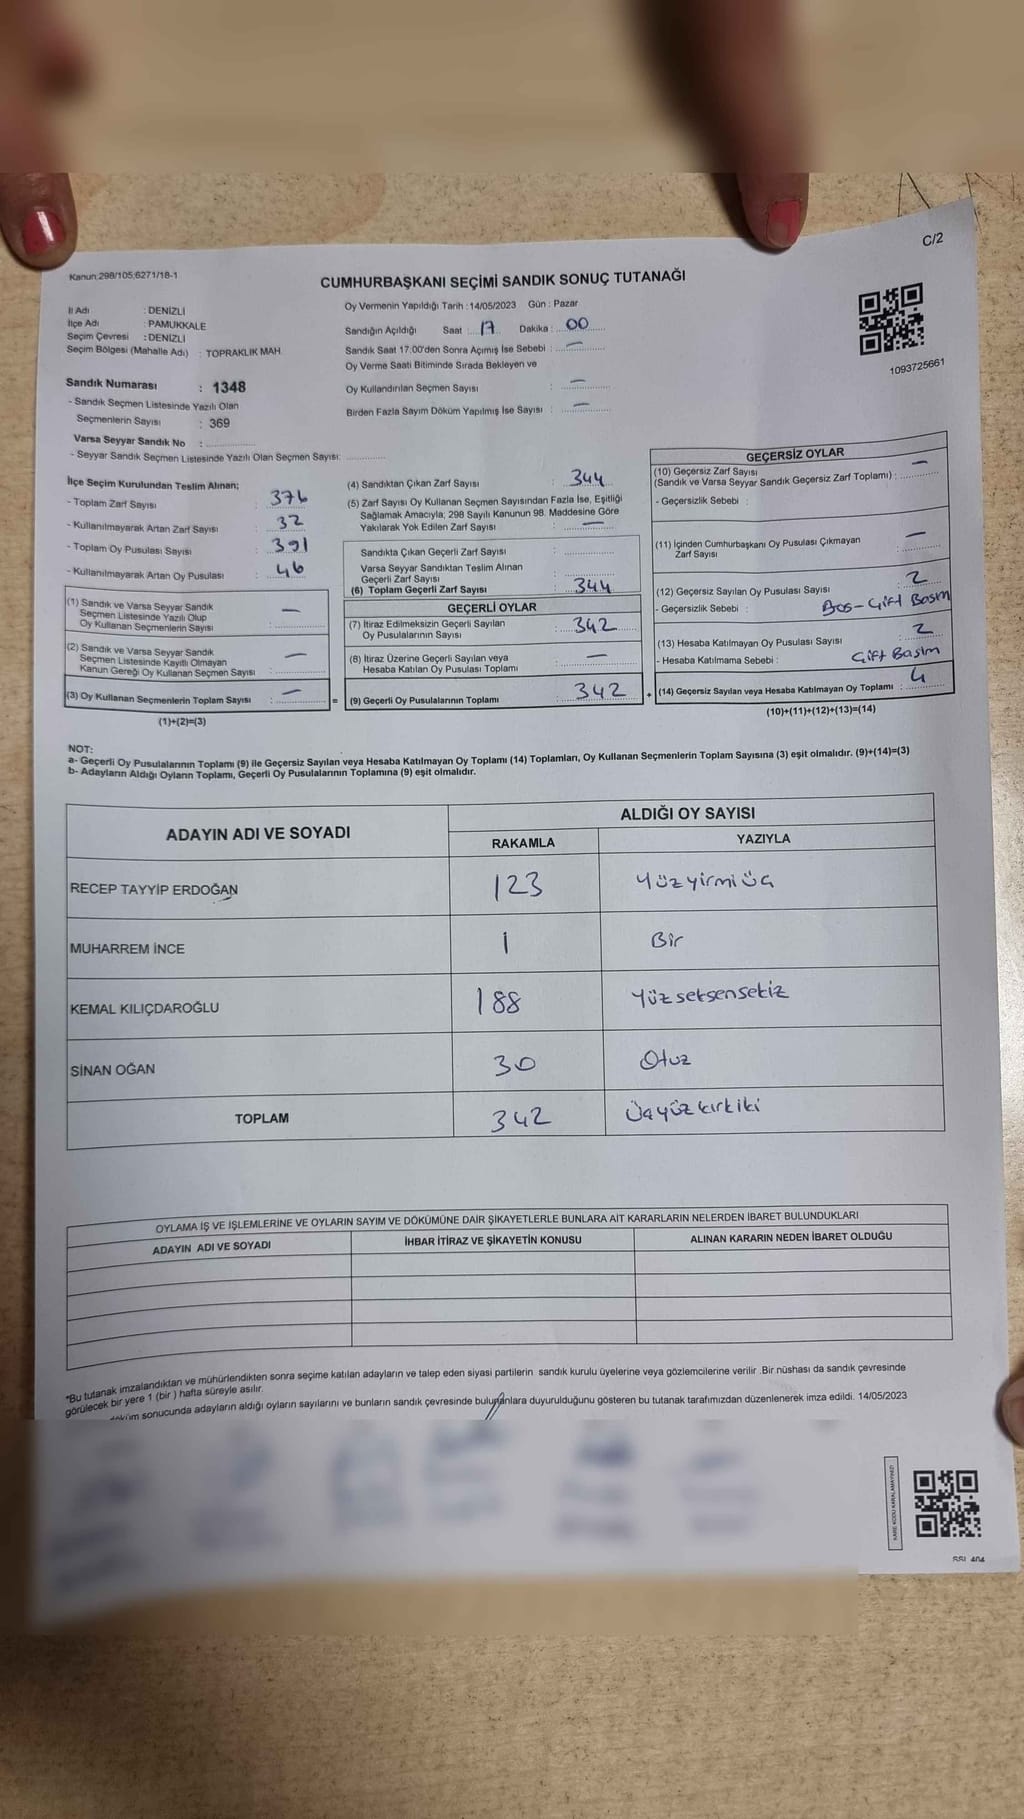 C/2
Kanun:298/105;6271/18-1
CUMHURBAŞKANI SEÇİMİ SANDIK SONUÇ TUTANAĞI
1093725661
İl Adı : DENİZLİ
İlçe Adı : PAMUKKALE
Seçim Çevresi : DENİZLİ
Seçim Bölgesi (Mahalle Adı) : TOPRAKLIK MAH.
Sandık Numarası : 1348
- Sandık Seçmen Listesinde Yazılı Olan
Seçmenlerin Sayısı : 369
Varsa Seyyar Sandık No :
- Seyyar Sandık Seçmen Listesinde Yazılı Olan Seçmen Sayısı:
Oy Vermenin Yapıldığı Tarih :14/05/2023 Gün : Pazar
Sandığın Açıldığı Saat : 17 Dakika : 00
Sandık Saat 17:00'den Sonra Açımış İse Sebebi : —
Oy Verme Saati Bitiminde Sırada Bekleyen ve
Oy Kullandırılan Seçmen Sayısı : —
Birden Fazla Sayım Döküm Yapılmış İse Sayısı : —
İlçe Seçim Kurulundan Teslim Alınan;
- Toplam Zarf Sayısı : 376
- Kullanılmayarak Artan Zarf Sayısı : 32
- Toplam Oy Pusulası Sayısı : 391
- Kullanılmayarak Artan Oy Pusulası : 46
(1) Sandık ve Varsa Seyyar Sandık
Seçmen Listesinde Yazılı Olup
Oy Kullanan Seçmenlerin Sayısı : —
(2) Sandık ve Varsa Seyyar Sandık
Seçmen Listesinde Kayıtlı Olmayan
Kanun Gereği Oy Kullanan Seçmen Sayısı : —
(3) Oy Kullanan Seçmenlerin Toplam Sayısı : — =
(1)+(2)=(3)
(4) Sandıktan Çıkan Zarf Sayısı : 344
(5) Zarf Sayısı Oy Kullanan Seçmen Sayısından Fazla İse, Eşitliği
Sağlamak Amacıyla; 298 Sayılı Kanunun 98. Maddesine Göre
Yakılarak Yok Edilen Zarf Sayısı : —
Sandıkta Çıkan Geçerli Zarf Sayısı :
Varsa Seyyar Sandıktan Teslim Alınan
Geçerli Zarf Sayısı :
(6) Toplam Geçerli Zarf Sayısı : 344
GEÇERLİ OYLAR
(7) İtiraz Edilmeksizin Geçerli Sayılan
Oy Pusulalarının Sayısı : 342
(8) İtiraz Üzerine Geçerli Sayılan veya
Hesaba Katılan Oy Pusulası Toplamı : —
(9) Geçerli Oy Pusulalarının Toplamı : 342 +
GEÇERSİZ OYLAR
(10) Geçersiz Zarf Sayısı
(Sandık ve Varsa Seyyar Sandık Geçersiz Zarf Toplamı) : —
- Geçersizlik Sebebi :
(11) İçinden Cumhurbaşkanı Oy Pusulası Çıkmayan
Zarf Sayısı : —
(12) Geçersiz Sayılan Oy Pusulası Sayısı : 2
- Geçersizlik Sebebi : Bos - Çift Basım
(13) Hesaba Katılmayan Oy Pusulası Sayısı : 2
- Hesaba Katılmama Sebebi : Çift Basim
(14) Geçersiz Sayılan veya Hesaba Katılmayan Oy Toplamı : 4
(10)+(11)+(12)+(13)=(14)
NOT:
a- Geçerli Oy Pusulalarının Toplamı (9) ile Geçersiz Sayılan veya Hesaba Katılmayan Oy Toplamı (14) Toplamları, Oy Kullanan Seçmenlerin Toplam Sayısına (3) eşit olmalıdır. (9)+(14)=(3)
b- Adayların Aldığı Oyların Toplamı, Geçerli Oy Pusulalarının Toplamına (9) eşit olmalıdır.
ADAYIN ADI VE SOYADI
ALDIĞI OY SAYISI
RAKAMLA YAZIYLA
RECEP TAYYİP ERDOĞAN 123 Yüzyirmiüç
MUHARREM İNCE 1 Bir
KEMAL KILIÇDAROĞLU 188 Yüzseksensekiz
SİNAN OĞAN 30 Otuz
TOPLAM 342 Üçyüzkırkiki
OYLAMA İŞ VE İŞLEMLERİNE VE OYLARIN SAYIM VE DÖKÜMÜNE DAİR ŞİKAYETLERLE BUNLARA AİT KARARLARIN NELERDEN İBARET BULUNDUKLARI
ADAYIN ADI VE SOYADI İHBAR İTİRAZ VE ŞİKAYETİN KONUSU ALINAN KARARIN NEDEN İBARET OLDUĞU
*Bu tutanak imzalandıktan ve mühürlendikten sonra seçime katılan adayların ve talep eden siyasi partilerin sandık kurulu üyelerine veya gözlemcilerine verilir .Bir nüshası da sandık çevresinde
görülecek bir yere 1 (bir ) hafta süreyle asılır.
sonucunda adayların aldığı oyların sayılarını ve bunların sandık çevresinde bulunanlara duyurulduğunu gösteren bu tutanak tarafımızdan düzenlenerek imza edildi. 14/05/2023